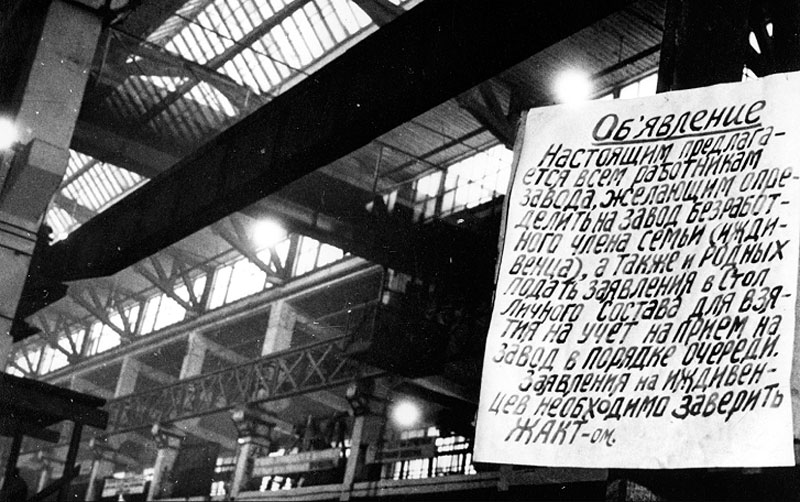 Об'явление
Настоящим предлага-
ется всем работникам
завода, желающим опре-
делить на завод безработ-
ного члена семьи (ижди-
венца), а также и родных
подать заявления в Стол
личного состава для взя-
тия на учет на прием на
завод в порядке очереди.
Заявления на иждивен-
цев необходимо заверить
ЖАКТ-ом.